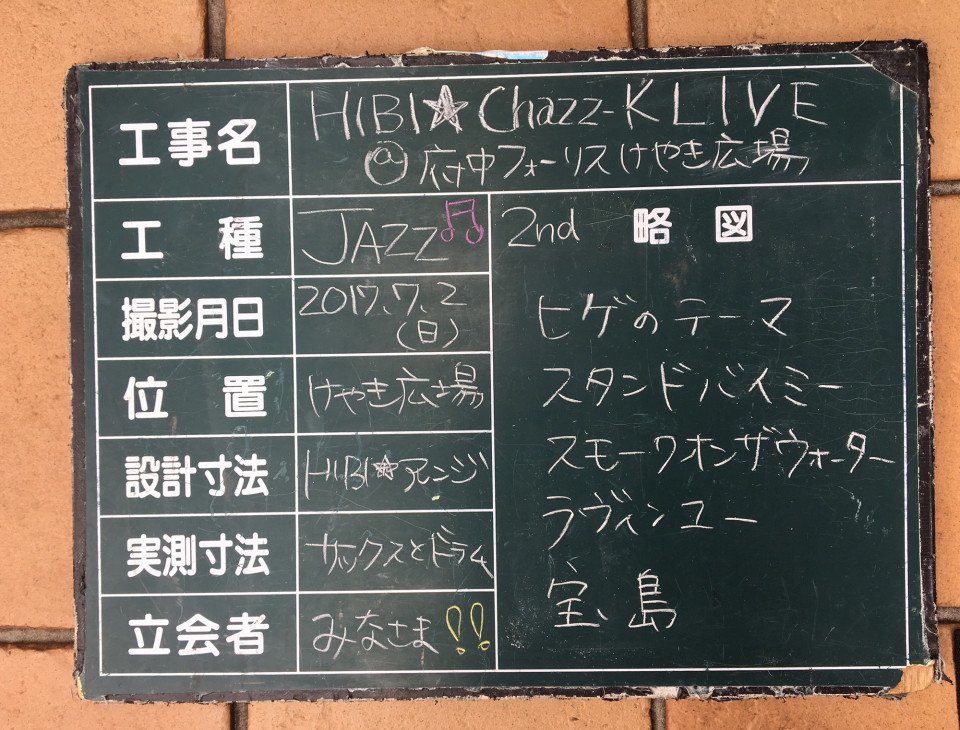 工事名 HIBI☆Chazz-K LIVE
@府中フォーリスけやき広場
工種 JAZZ♫
撮影月日 2017.7.2
(日)
位置 けやき広場
設計寸法 HIBI☆アレンジ
実測寸法 サックスとドラム
立会者 みなさま!!
2nd 略図
ヒゲのテーマ
スタンドバイミー
スモークオンザウォーター
ラヴィンユー
宝島